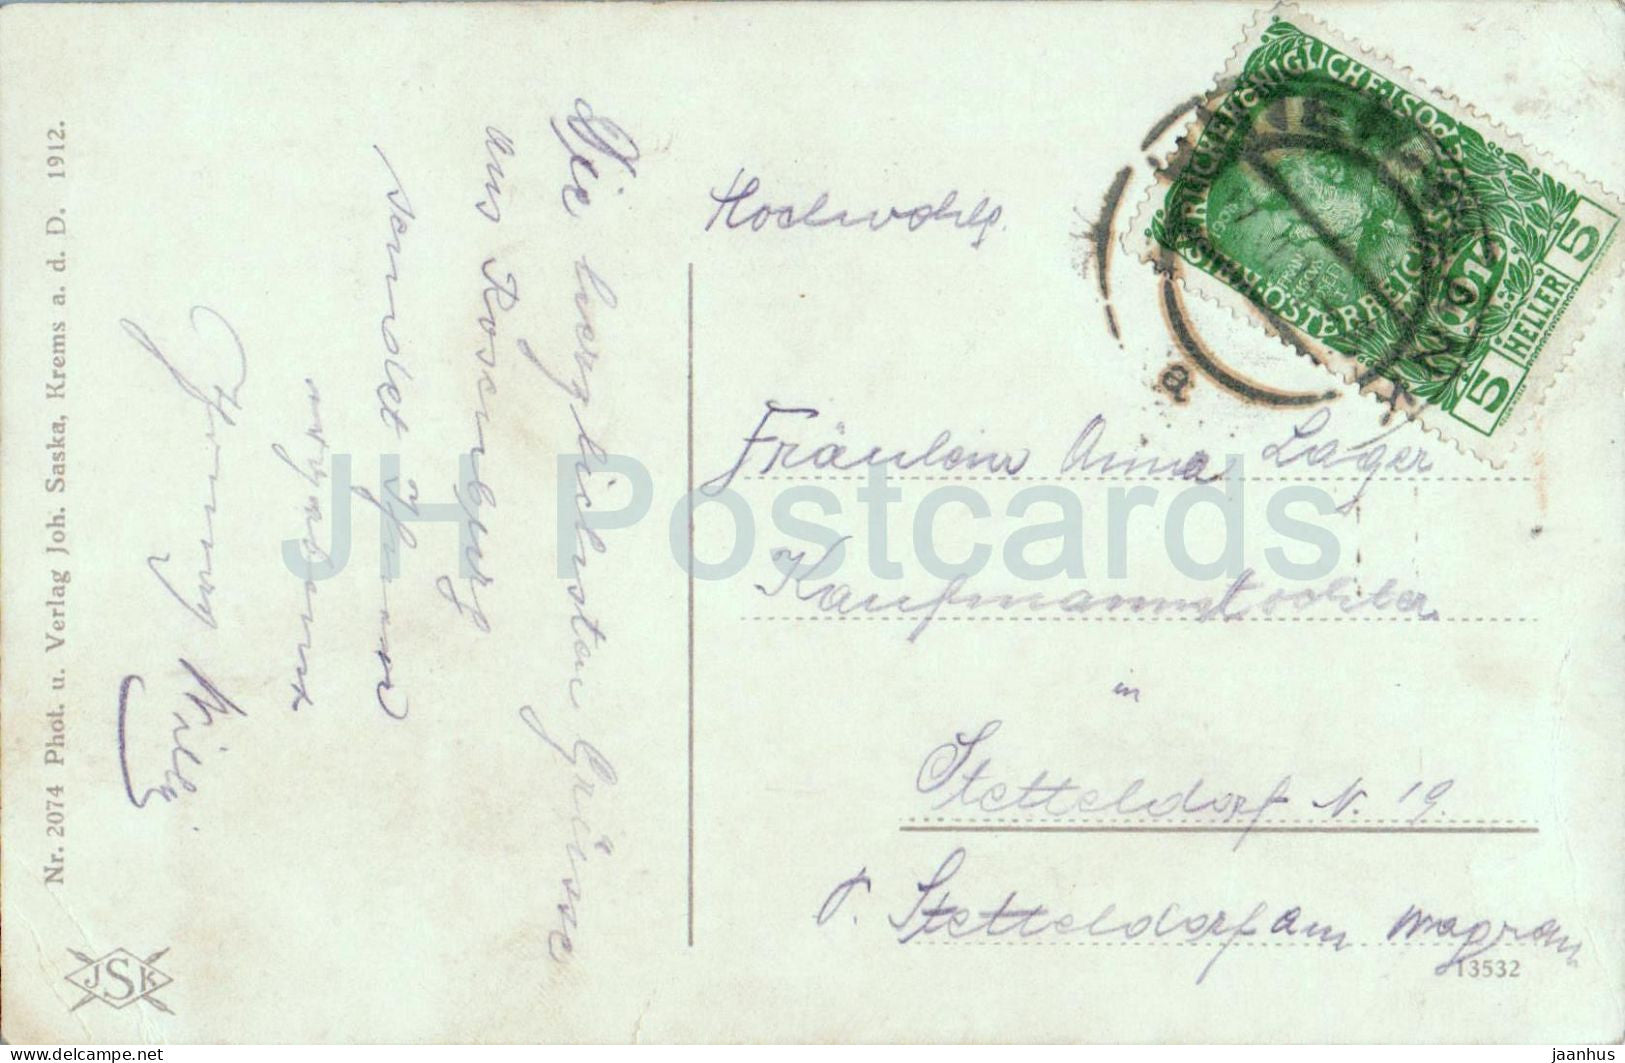 Die herzlichsten Grüsse
aus Rosenburg
sendet Ihnen
Nr. 2074 Phot. u. Verlag Joh. Saska, Krems a. d. D. 1912.
JSK
Hochwohlg.
Fräulein Anna Lager
Kaufmannstochter
in
Stetteldorf N. 19.
P. Stetteldorf am Wagram
13532
5 HELLER 5
ÖSTERREICH
a
JH Postcards
www.delcampe.net
jaanhus